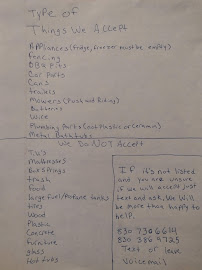 Type of
Things We Accept
Appliances (fridge, freezer must be empty)
Fencing
BBQ Pits
Car Parts
Cans
trailers
Mowers (Push and Riding)
Batteries
Wire
Plumbing Parts (not Plastic or Ceramic)
Metal Bathtubs
We Do NOT Accept
T.V's
Mattresses
Box springs
trash
food
large fuel/Propane tanks
tires
Wood
Plastic
Concrete
furniture
glass
IF it's not listed
and you are unsure
if we will accept just
text and ask, We will
be more than happy to
help.
830 730 6614
830 386 4725
Text or leave
Voicemail